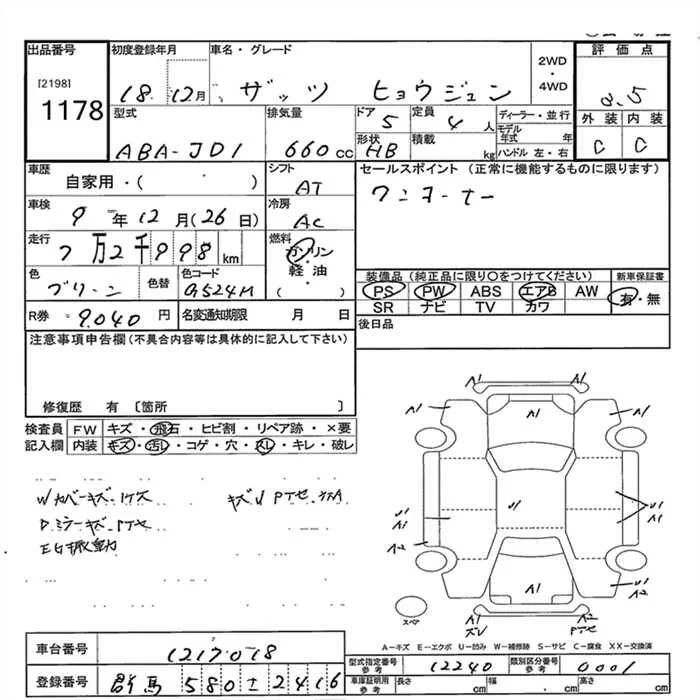 出品番号 初度登録年月 車名・グレード 2WD・4WD 評価点
[2198] 1178 18. 12月 ザッツ ヒョウジュン 3.5
型式 排気量 ドア 定員 ディーラー・並行 外装 内装
ABA-JD1 660cc 5 4人 モデル年式 年 C C
形状 積載 ハンドル 左・右
HB kg
車歴 シフト セールスポイント(正常に機能するものに限ります)
自家用・( ) AT ワンオーナー
車検 冷房
9年12月(26日) AC
走行 燃料
7万2千998km ガソリン・軽油・( )
色 色替 色コード 装備品(純正品に限り○をつけてください) 新車保証書
グリーン G524M PS PW ABS エアB AW 有・無
SR ナビ TV カワ
R券 9.040円 名変通知期限 月 日 後日品
注意事項申告欄(不具合内容等は具体的に記入して下さい)
修復歴 有 〔箇所 〕
検査員記入欄 FW キズ・飛石・ヒビ割・リペア跡・×要
内装 キズ・汚レ・コゲ・穴・スレ・キレ・破レ
Wカバーキズ. キズU PTセ.
Dミラーキズ.PTセ
EG振動
A1 A1
A1 A1 A1
U1 A1 U1 U1 A1
A2
U1 A2
A1
A1 A2
スペア キズU PTセ
A=キズ E=エクボ U=凹み W=補修跡 S=サビ C=腐食 XX=交換済
車台番号 1217018
型式指定番号 参考 12240 類別区分番号 参考 0001
登録番号 群馬 580 ± 2416
車庫証明用 参考 長さ cm 幅 cm 高さ cm